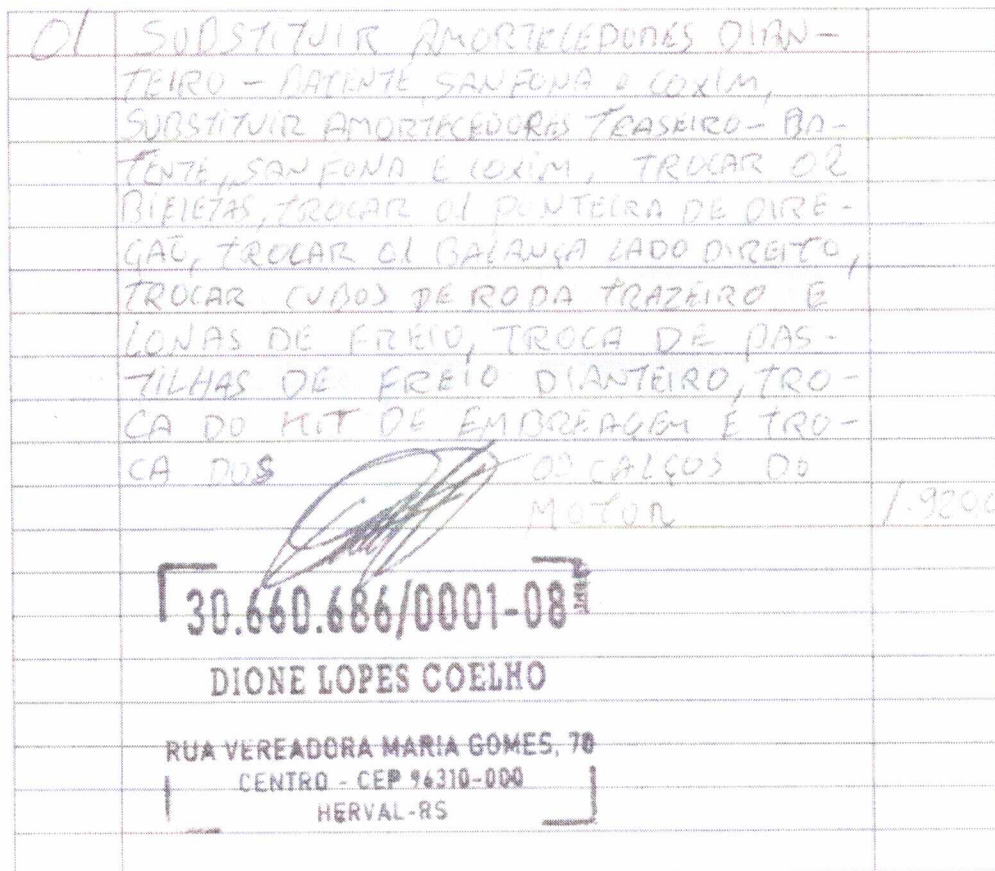 01 SUBSTITUIR AMORTECEDORES DIAN-
TEIRO - BATENTE, SANFONA e COXIM,
SUBSTITUIR AMORTECEDORES TRASEIRO - BA-
TENTE, SANFONA E COXIM, TROCAR 02
BIELETAS, TROCAR 01 PONTEIRA DE DIRE-
ÇAO, TROCAR 01 BALANÇA LADO DIREITO,
TROCAR CUBOS DE RODA TRAZEIRO E
LONAS DE FREIO, TROCA DE PAS-
TILHAS DE FREIO DIANTEIRO, TRO-
CA DO KIT DE EMBREAGEM E TRO-
CA DOS 03 CALÇOS DO
MOTOR
30.660.686/0001-08
DIONE LOPES COELHO
RUA VEREADORA MARIA GOMES, 70
CENTRO - CEP 96310-000
HERVAL-RS